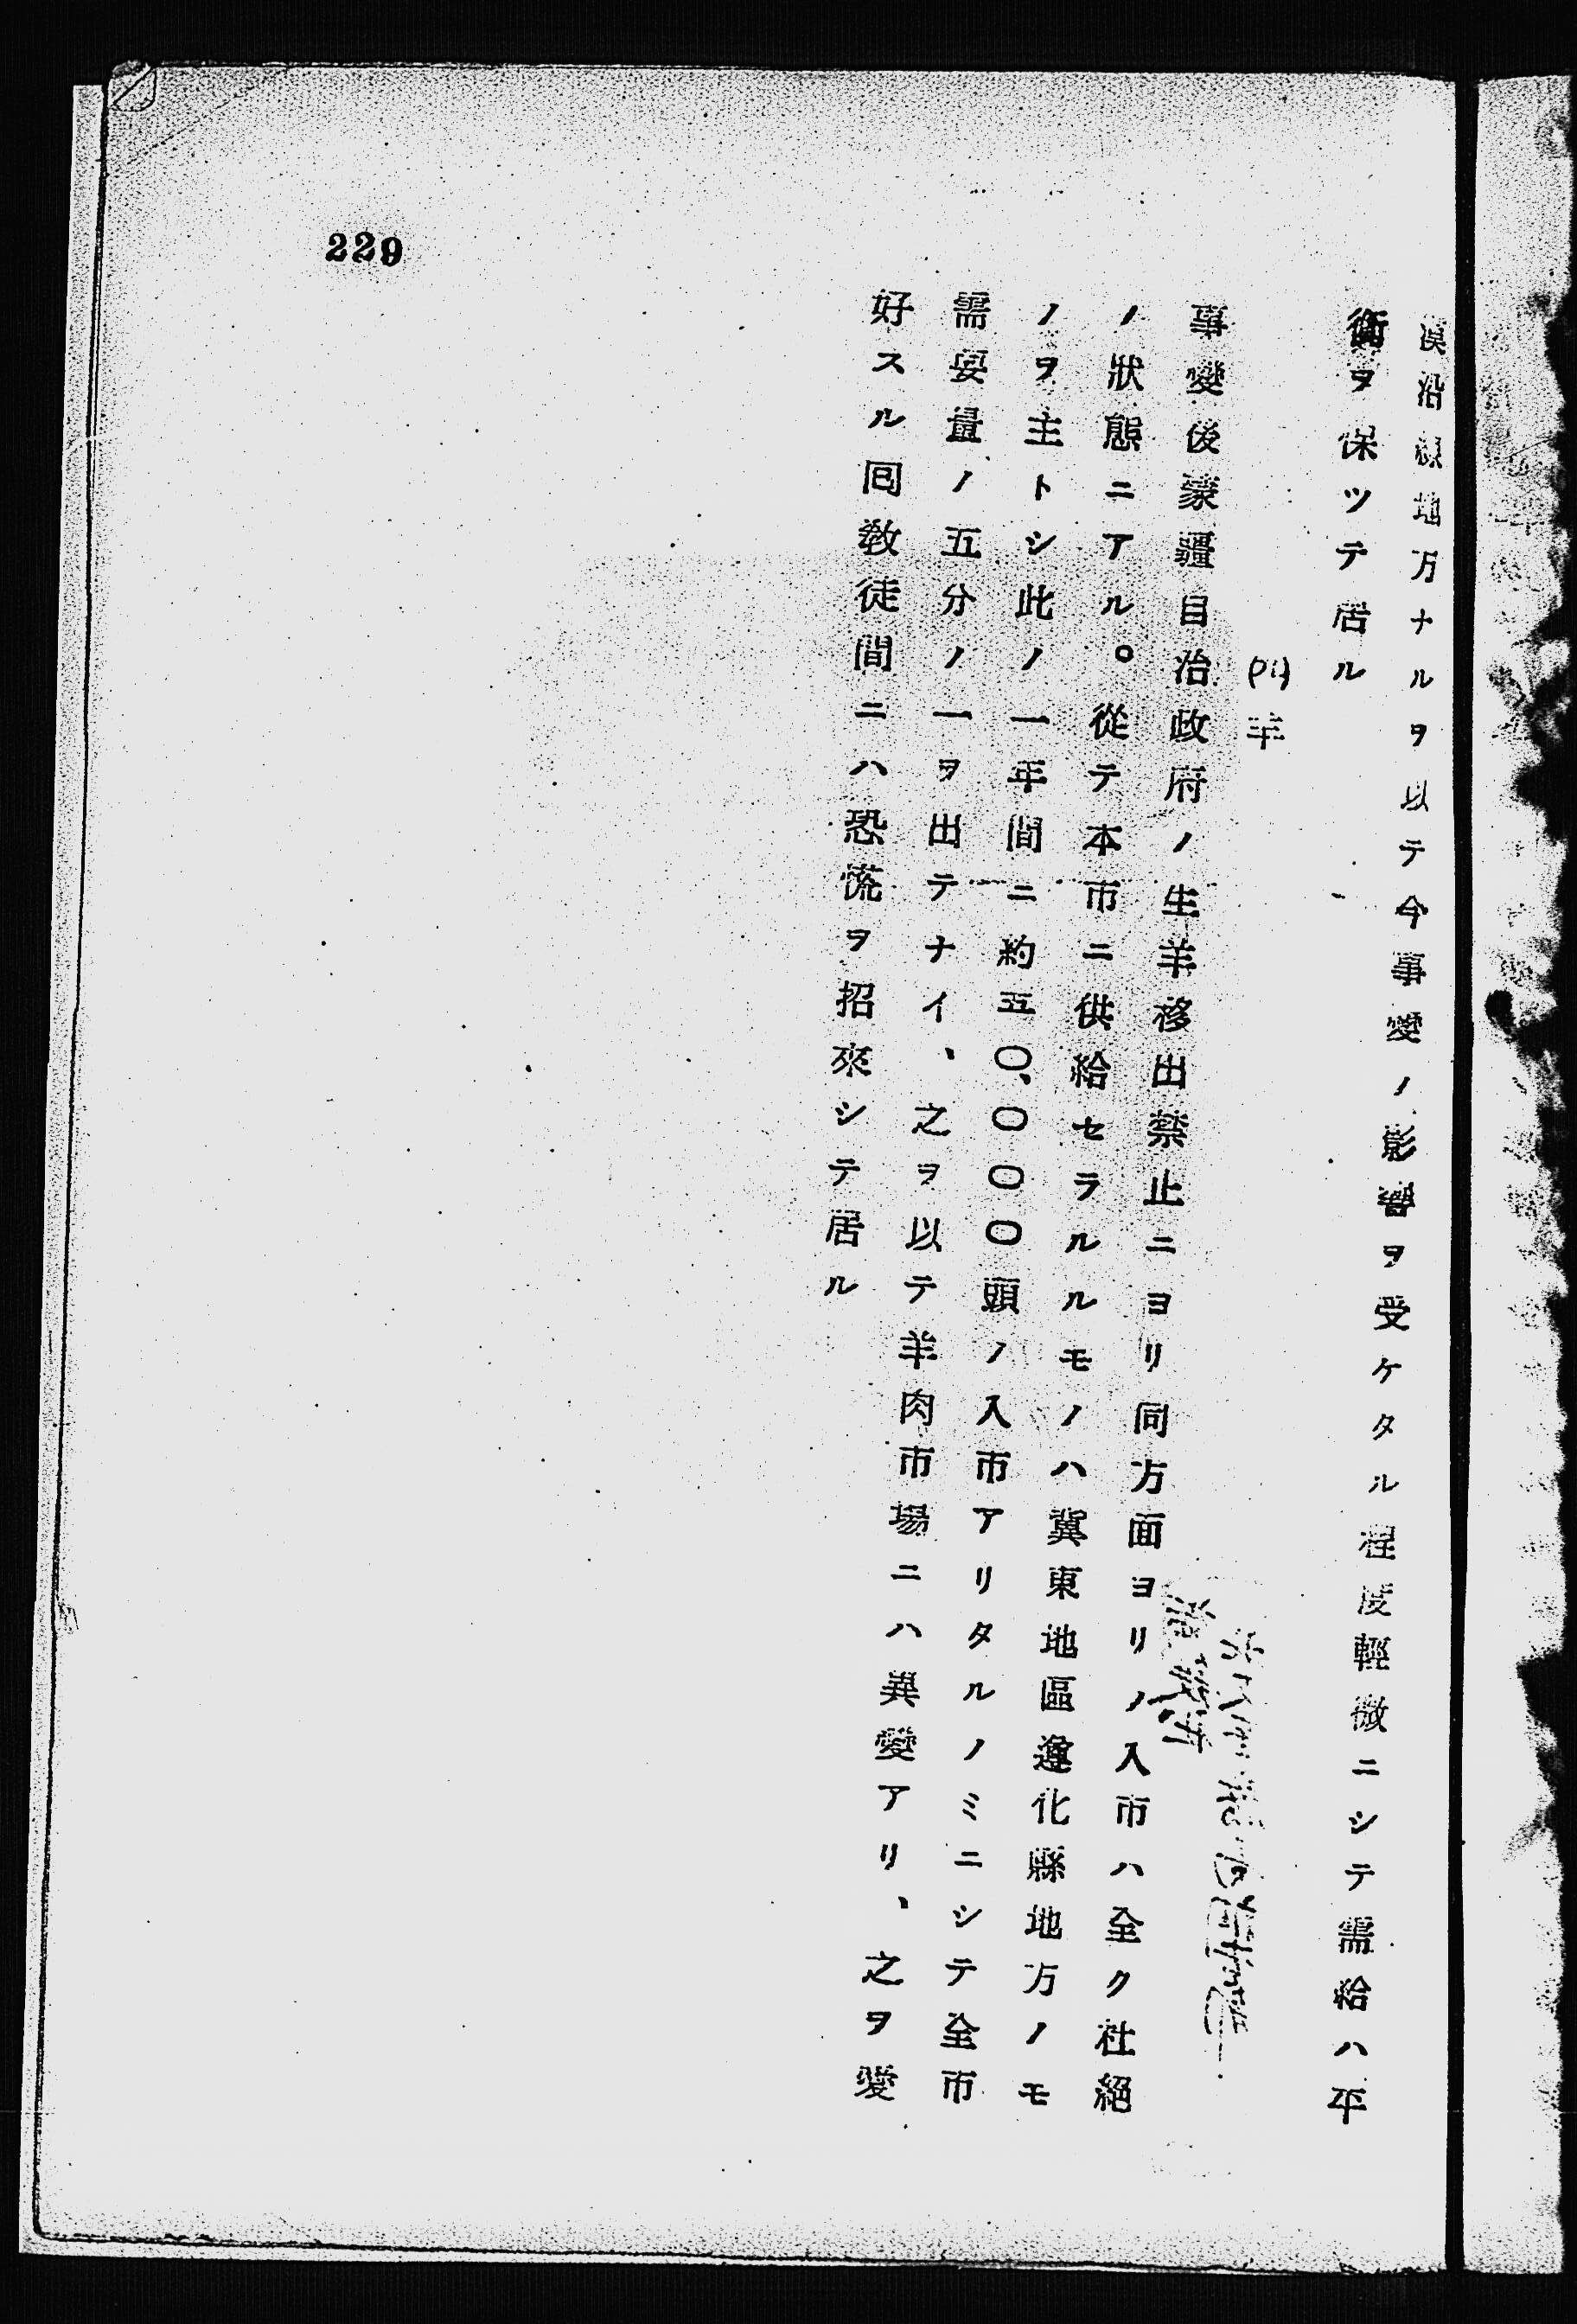 漠沿線地方ナルヲ以テ今事變ノ影響ヲ受ケタル程度輕微ニシテ需給ハ平
衡ヲ保ツテ居ル
羊
事變後蒙疆自治政府ノ生羊移出禁止ニヨリ同方面ヨリノ入市ハ全ク杜絕
ノ狀態ニアル。從テ本市ニ供給セラルルモノハ冀東地區遵化縣地方ノモ
ノヲ主トシ此ノ一年間ニ約五〇、〇〇〇頭ノ入市アリタルノミニシテ全市
需要量ノ五分ノ一ヲ出テナイ、之ヲ以テ羊肉市場ニハ異變アリ、之ヲ愛
好スル囘敎徒間ニハ恐慌ヲ招來シテ居ル
229